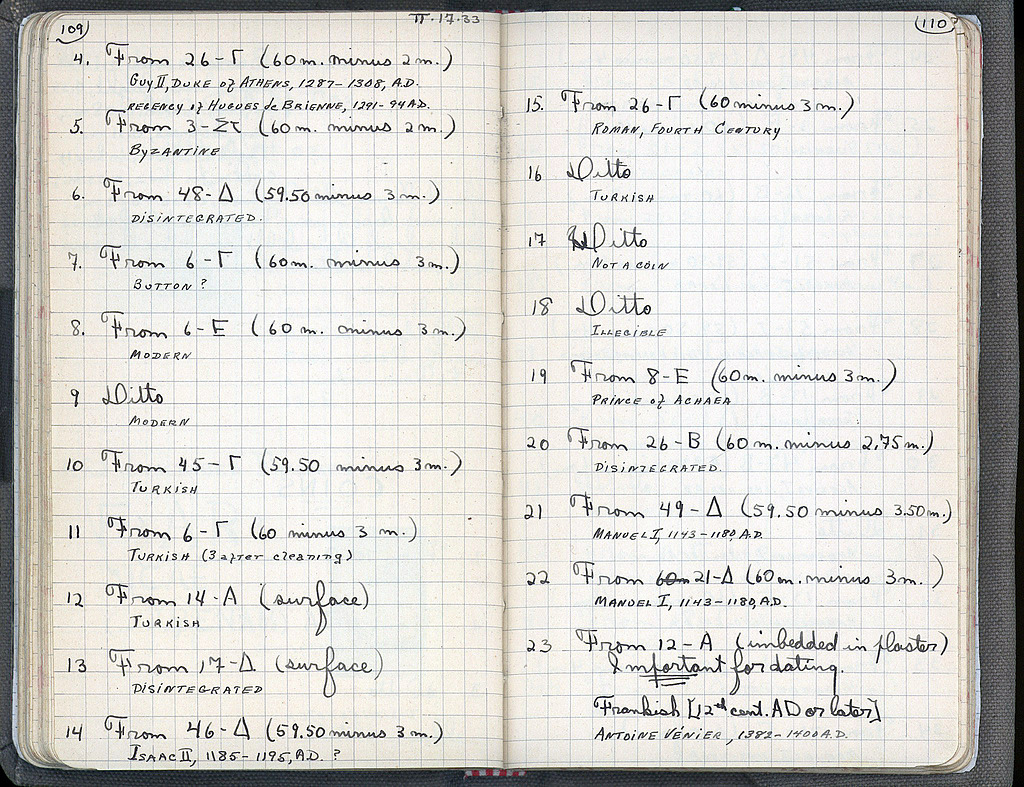 109
ΙΙ·17·33
4. From 26-Γ (60 m. minus 2 m.)
Guy II, Duke of Athens, 1287-1308, A.D.
Regency of Hugues de Brienne, 1291-94 A.D.
5. From 3-Στ (60 m. minus 2 m.)
Byzantine
6. From 48-Δ (59.50 minus 3 m.)
Disintegrated.
7. From 6-Γ (60 m. minus 3 m.)
Button ?
8. From 6-E (60 m. minus 3 m.)
Modern
9 Ditto
Modern
10 From 45-Γ (59.50 minus 3 m.)
Turkish
11 From 6-Γ (60 minus 3 m.)
Turkish (3 after cleaning)
12 From 14-A (surface)
Turkish
13 From 17-Δ (surface)
Disintegrated
14 From 46-Δ (59.50 minus 3 m.)
Isaac II, 1185-1195, A.D. ?
110
15. From 26-Γ (60 minus 3 m.)
Roman, Fourth Century
16 Ditto
Turkish
17 Ditto
Not a coin
18 Ditto
Illegible
19 From 8-E (60 m. minus 3 m.)
Prince of Achaea
20 From 26-B (60 m. minus 2,75 m.)
Disintegrated.
21 From 49-Δ (59.50 minus 3.50 m.)
Manuel I, 1143-1180, A.D.
22 From 60m 21-Δ (60 m. minus 3 m.)
Manuel I, 1143-1180, A.D.
23 From 12-A (imbedded in plaster)
Important for dating.
Frankish [12th cent. AD or later]
Antoine Vénier, 1382-1400 A.D.